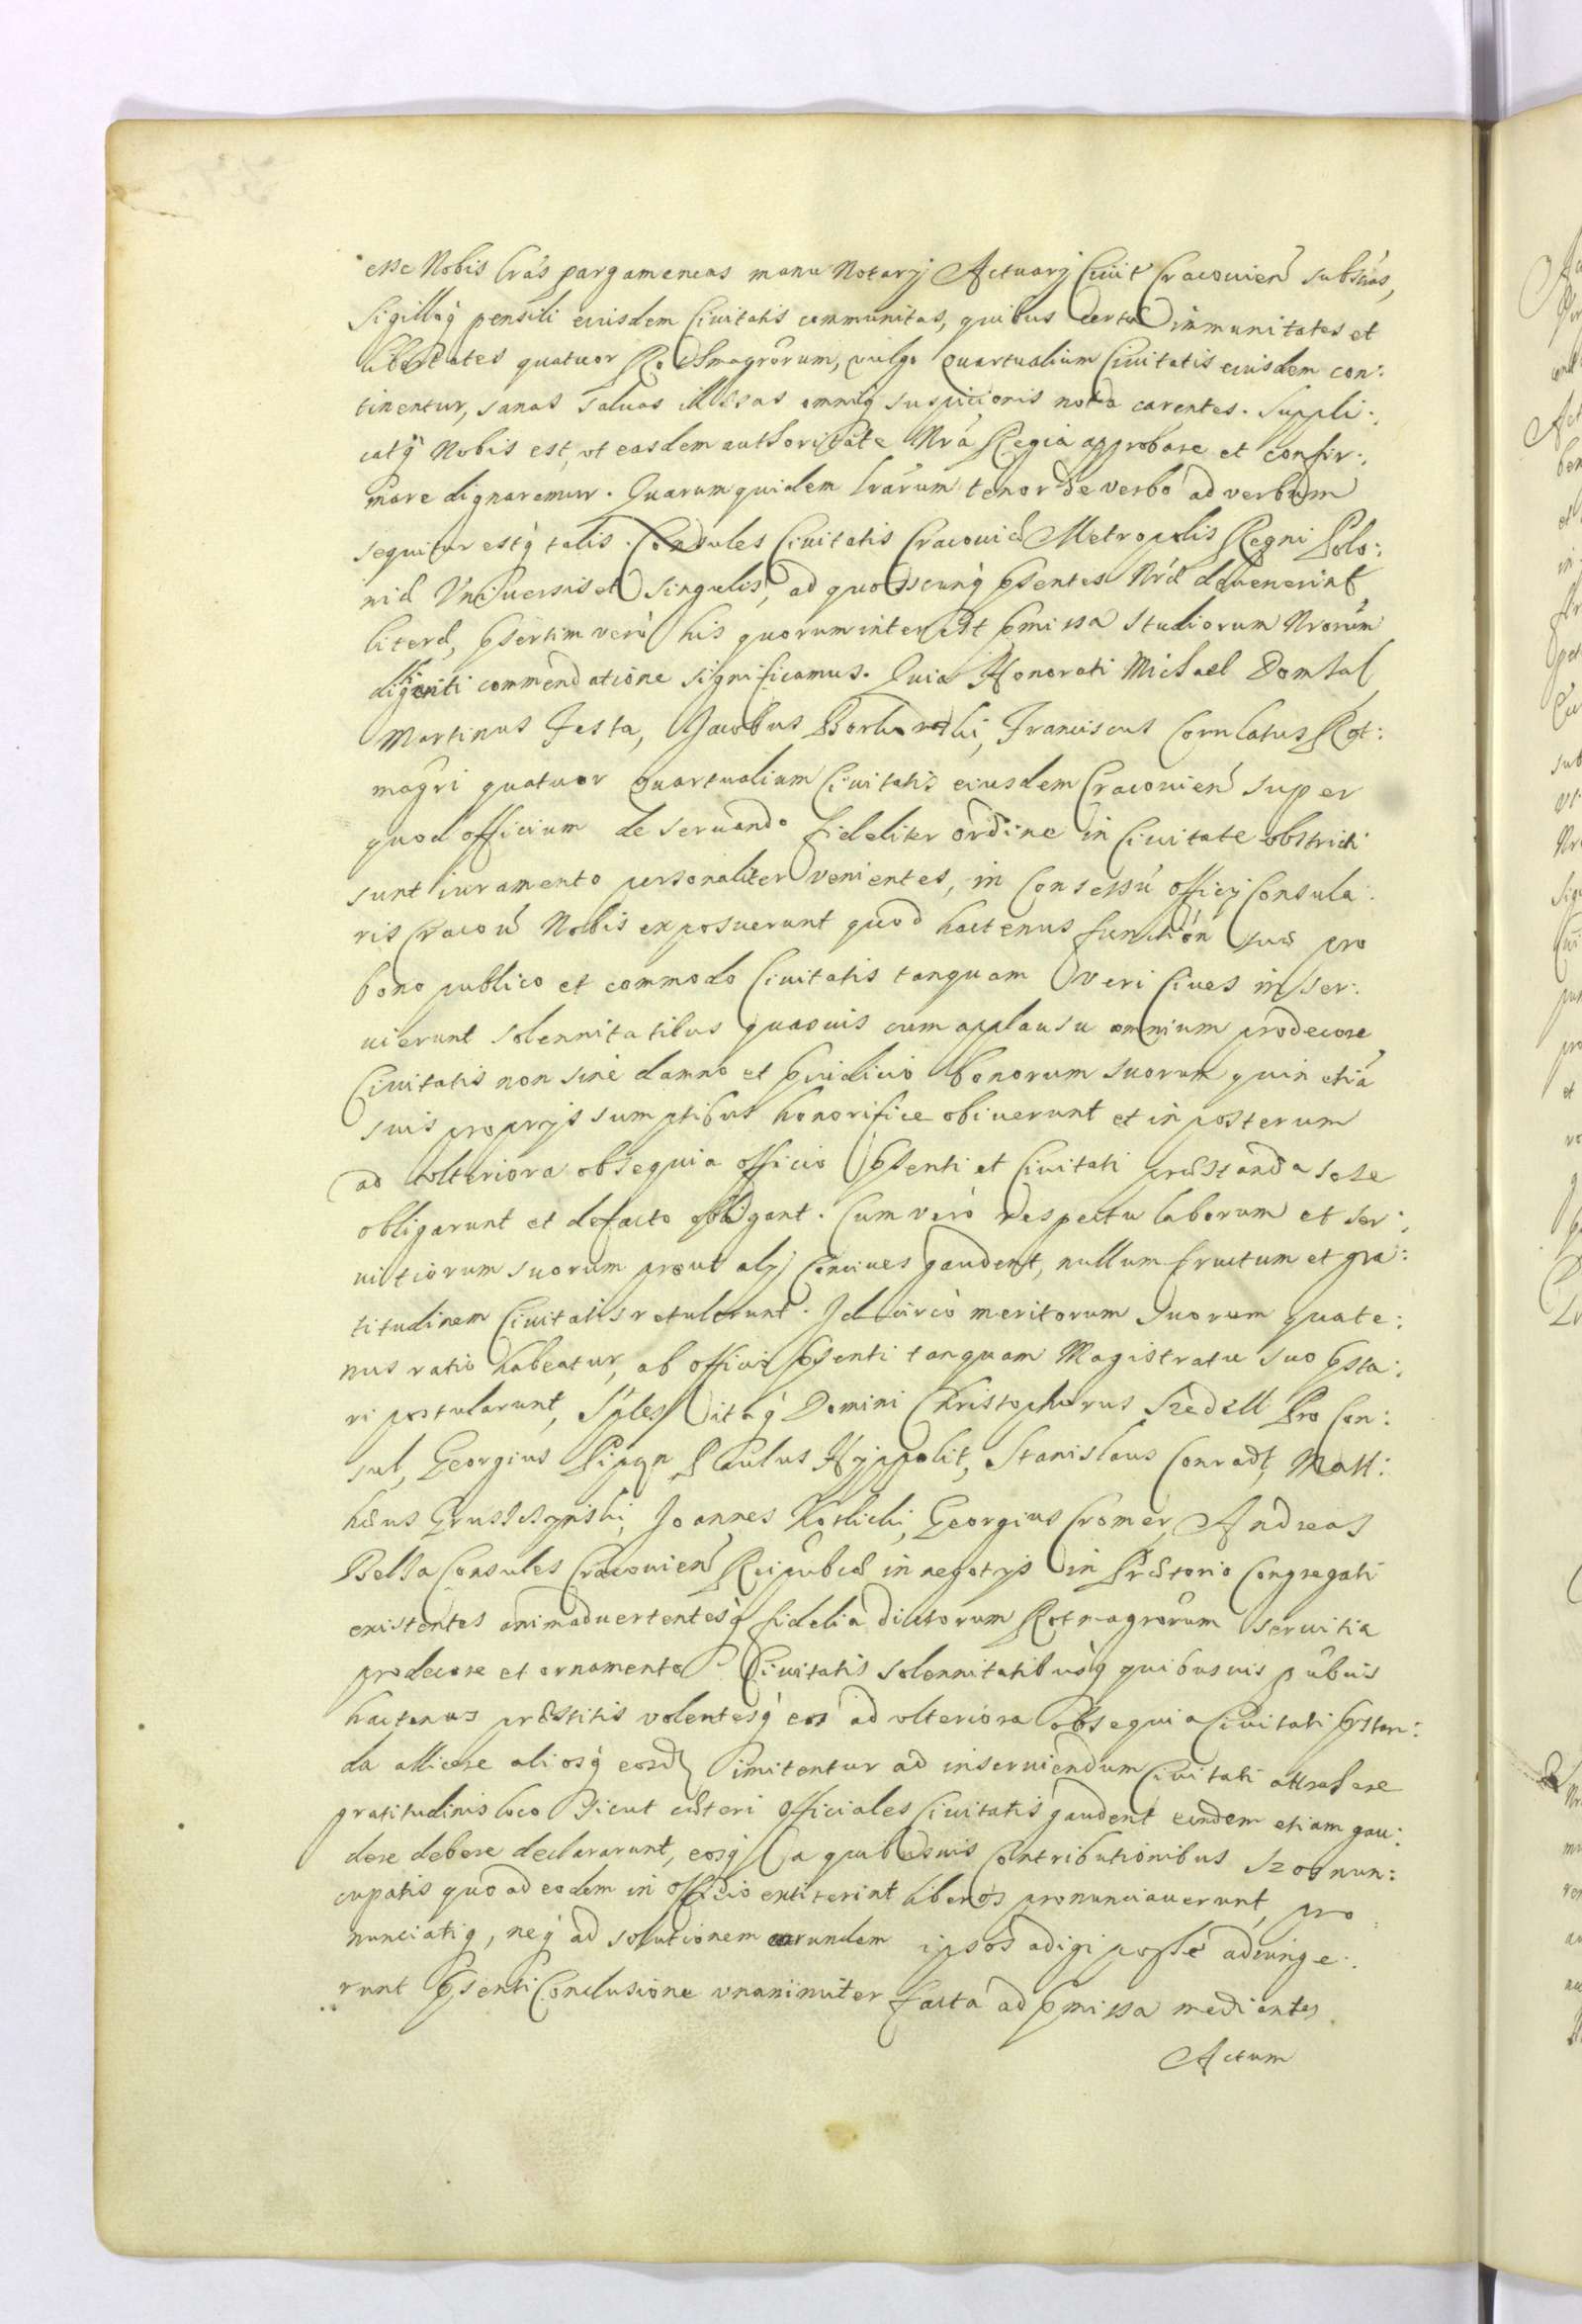 esse Nobis Lrás pargameneas manu Notarij Actuarij Ciuit Cracouien̄ subscrás,
Sigilloq́ pensili eiusdem Ciuitatis communitas, quibus certæ immunitates et
libertates quatuor Rothmagr̄orum, vulgo Quartualium Ciuitatis eiusdem con:
tinentur, sanas saluas illæsas omniq́ suspicionis nota carentes. Suppli:
catq́ Nobis est, vt easdem authoritate Nrá Regia approbare et confir:
mare dignaremur. Quarum quidem Lrárum tenor de verbo ad verbum
sequitur estq́ talis. Consules Ciuitatis Cracouiæ Metropolis Regni Polo:
niæ Vniuersis et singulis, ad quoscunq́ p̄sentes Nrǽ deuenerint
literæ, p̄sertim verò his quorum interest p̄missa studiorum Nrorum̄
diligenti commendatione significamus. Quia Honorati Michael Domhal
Martinus Festa, Jacobus Borkowski, Franciscus Cornlatus Rot:
magr̄i quatuor Quartualium Ciuitatis eiusdem Cracouien̄ super
quod officium de seruando fideliter ordine in Ciuitate obstricti
sunt iuramento personaliter venientes, in Consessu officij Consula:
ris Cracou̅ Nobis exposuerunt quod hactenus function̄ suæ pro
bono publico et commodo Ciuitatis tanquam veri Ciues inser:
uierunt solennitatibus quasuis cum applausu omnium pro decore
Ciuitatis non sine damno et p̄iudicio bonorum suorum quin etiā
suis proprijs sumptibus honorifice obiuerunt et in posterum
ad vlteriora obsequia officio p̄senti et Ciuitati præstanda sese
obligarunt et defacto obligant. Cum verò respectu laborum et ser:
uitiorum suorum prout alij Conciues gaudent, nullum fructum et gra:
titudinem Ciuitatis retulerunt. Idcircò meritorum suorum quate:
nus ratio habeatur, ab officio p̄senti tanquam Magistratu suo p̄sta:
ri postularunt, Sp̄les itaq́ Domini Christophorus Szedell Pro Con:
sul, Georgius Pipan Paulus Hyppolit, Stanislaus Conradt, Matt:
hæus Grusczynski, Joannes Kotlicki, Georgius Cromer, Andreas
Belza Consules Cracouien̄ Reipubcæ in negotijs in Prætorio Congregati
existentes animaduertentesq́ fidelia dictorum Rotmagrōrum seruitia
pro decore et ornamento Ciuitatis solennitatibusq́ quibusuis pu̅bcis
hactenus præstitis volentesq́ eos ad vlteriora obsequia Ciuitati p̄stan:
da allicere aliosq́ eosd imitentur ad inseruiendum Ciuitati attrahere
gratitudinis loco sicut cæteri officiales Ciuitatis gaudent eundem etiam gau:
dere debere declararunt, eosq́ a quibusuis Contributionibus Szos nun:
cupatis quo ad eodem in officio extiterint liberos pronunciauerunt, pro
nunciatiq, neq́ ad solutionem earundem ipsos adigi posse adiunxe:
runt p̄senti Conclusione vnanimiter facta ad p̄missa mediantes.
Actum